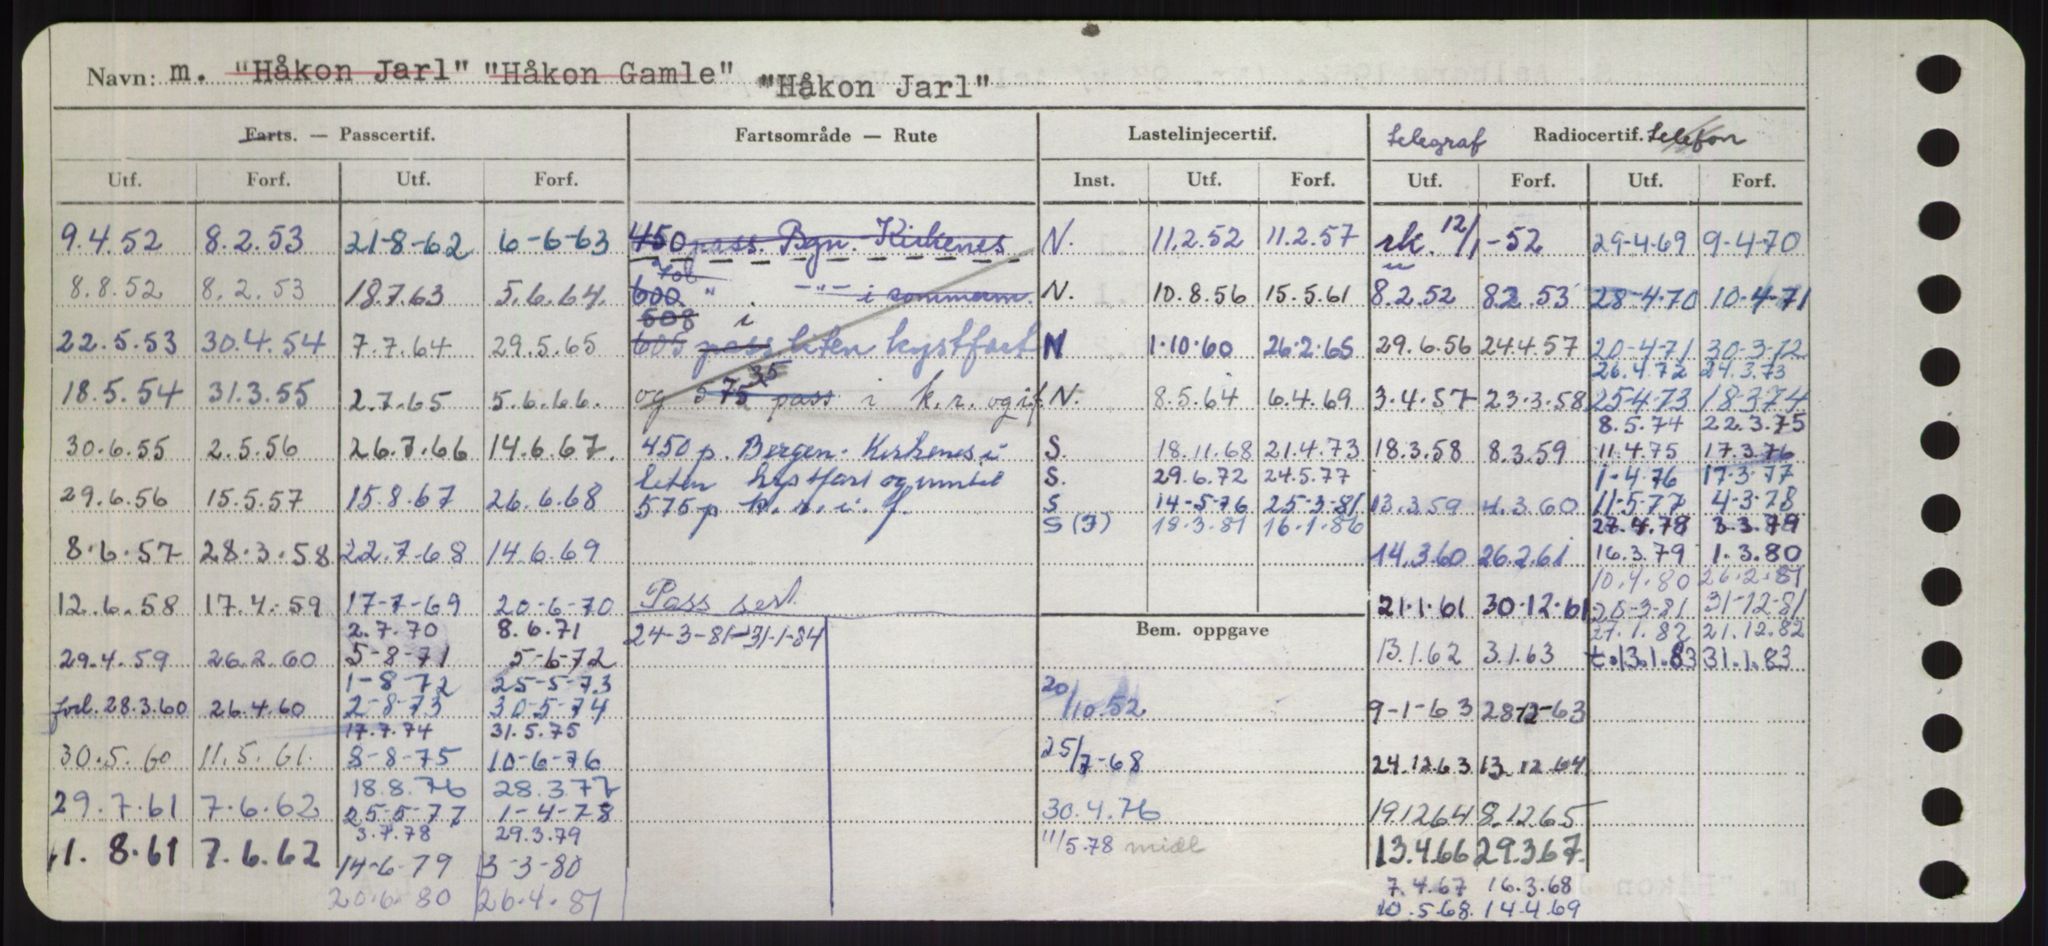 Navn: m. "Håkon Jarl" "Håkon Gamle" "Håkon Jarl"
Farts. — Passcertif. Fartsområde — Rute Lastelinjecertif. telegraf Radiocertif. telefon
Utf. Forf. Utf. Forf. Inst. Utf. Forf. Utf. Forf. Utf. Forf.
9.4.52 8.2.53 21-8-62 6-6-63 450 pass. Bgn. Kirkenes N. 11.2.52 11.2.57 rk. 12/1-52 29-4-69 9-4-70
8.8.52 8.2.53 18.7.63 5.6.64. 600 706 " . -"- i sommerm. N. 10.8.56 15.5.61 8.2.52 8.2.53 28-4-70 10-4-71
608 i
22.5.53 30.4.54 7.7.64 29.5.65 605 pass liten kystfart N 1.10.60 26.2.65 29.6.56 24.4.57 20-4-71 30-3-72
26.4.72 24.3.73
18.5.54 31.3.55 2.7.65 5.6.66. og 575 35 pass i k.r. og i.f. N. 8.5.64 6.4.69 3.4.57 23.3.58 25-4-73 18-3-74
8.5.74 22.3.75
30.6.55 2.5.56 26.7.66 14.6.67. 450 p. Bergen. Kirkenes i S. 18.11.68 21.4.73 18.3.58 8.3.59 11.4.75 17.3.76
liten kystfart og inntil S. 29.6.72 24.5.77 1-4-76 17-3-77
29.6.56 15.5.57 15.8.67 26.6.68 575 p k. r. i. f. S 14-5-76 25-3-81 13.3.59 4.3.60 11-5-77 4-3-78
S (F) 18.3.81 16.1.86 27.4.78 3.3.79
8.6.57 28.3.58 22.7.68 14.6.69 14.3.60 26.2.61 16.3.79 1.3.80
10.4.80 26.2.81
12.6.58 17.4.59 17-7-69 20-6-70 Pass sert. 21.1.61 30.12.61 26-3-81 31-12-81
2.7.70 8.6.71 24-3-81-31-1-84 Bem. oppgave 27.1.82 21.12.82
29.4.59 26.2.60 5-8-71 5-6-72 13.1.62 3.1.63 t.13.1.83 31.1.83
1-8-72 25-5-73
forl. 28.3.60 26.4.60 2-8-73 30-5-74 20/10.52 9-1-63 28-12-63
17.7.74 31.5.75
30.5.60 11.5.61. 8-8-75 10-6-76 25/7-68 24.12.63 13.12.64
18.8.76 28.3.77
29.7.61 7.6.62 25-5-77 1-4-78 30.4.76 19.12.64 8.12.65
3.7.78 29.3.79
1.8.61 7.6.62 14-6-79 3-3-80 11/5.78 midl 13.4.66 29.3.67.
20.6.80 26.4.81 7.4.67 16.3.68
10.5.68. 14.4.69